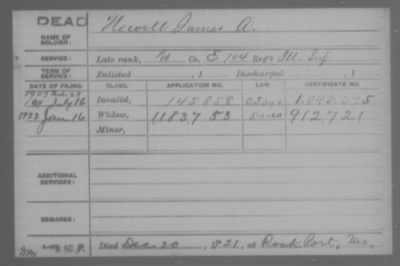 DEAD
NAME OF SOLDIER:
Newell James A.
SERVICE: Late rank, Co. E, 104 Reg't Ill. Inf
TERM OF SERVICE: Enlisted , 1 Discharged , 1
DATE OF FILING. CLASS. APPLICATION NO. LAW. CERTIFICATE NO.
July 16 Invalid, 145.858
1922 Jan 16 Widow, 1183753 912,721
Minor,
ADDITIONAL SERVICES:
REMARKS:
Died Dec 20 , 1921, at Rock Port, Mo.